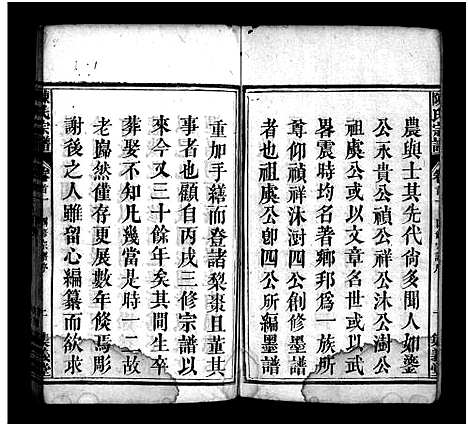 農與士其先代尙多聞人如鎏
公永貴公禎公祥公沐公澍公
祖虞公以文章名世或以武
畧震時均名著鄉邦爲一族所
尊仰禎祥沐澍四公創修墨譜
者也祖虞公卽四公所編墨譜
重加手繕而登諸梨棗且董其
事者也顧自丙戌三修宗譜以
來今又三十餘年矣其間生卒
葬娶不知凡幾當是時一二故
老巋然僅存更展數年倐焉彫
謝後之人雖留心編纂而欲求
陳氏宗譜
卷首一
集義堂